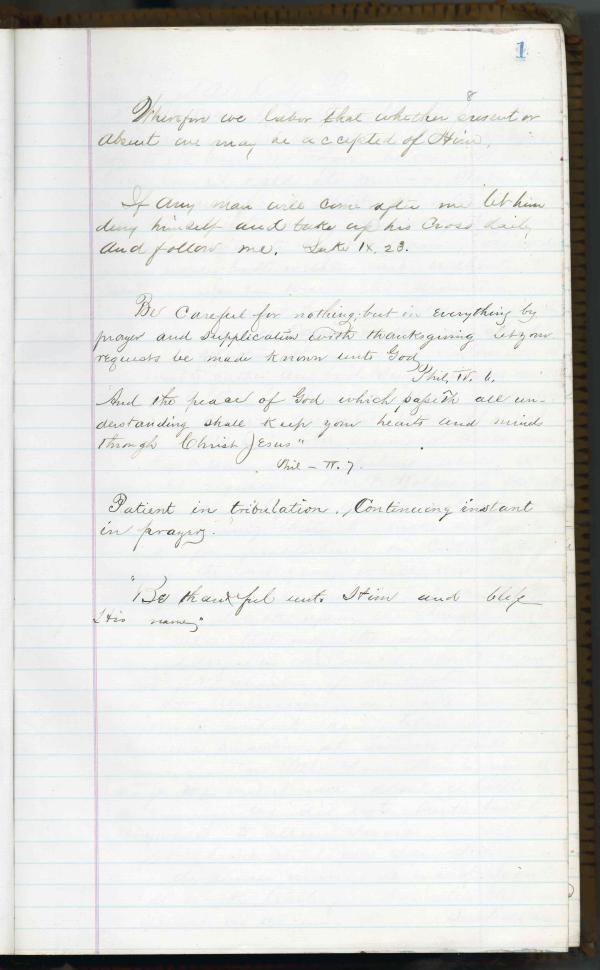 1
8
Wherefore we labor that whether present or
absent we may be accepted of Him.
If any man will come after me let him
deny himself and take up his Cross daily
and follow me. Luke IX. 23.
Be Careful for nothing; but in everything by
prayer and supplication with thanksgiving let your
requests be made known unto God
Phil. IV. 6.
And the peace of God which passeth all un-
derstanding shall keep your hearts and minds
through Christ Jesus"
Phil - IV. 7.
Patient in tribulation. Continuing instant
in prayer.
"Be thankful unto Him and bless
His name"